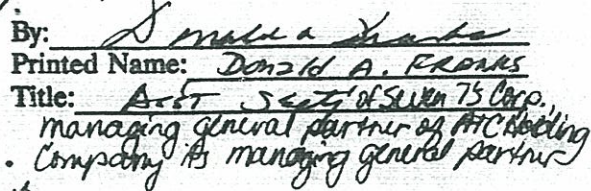 By: Donald A Franks
Printed Name: Donald A. FRANKS
Title: Asst Sect'y of Seven 7's Corp.,
managing general partner of ATC Holding
Company its managing general partner